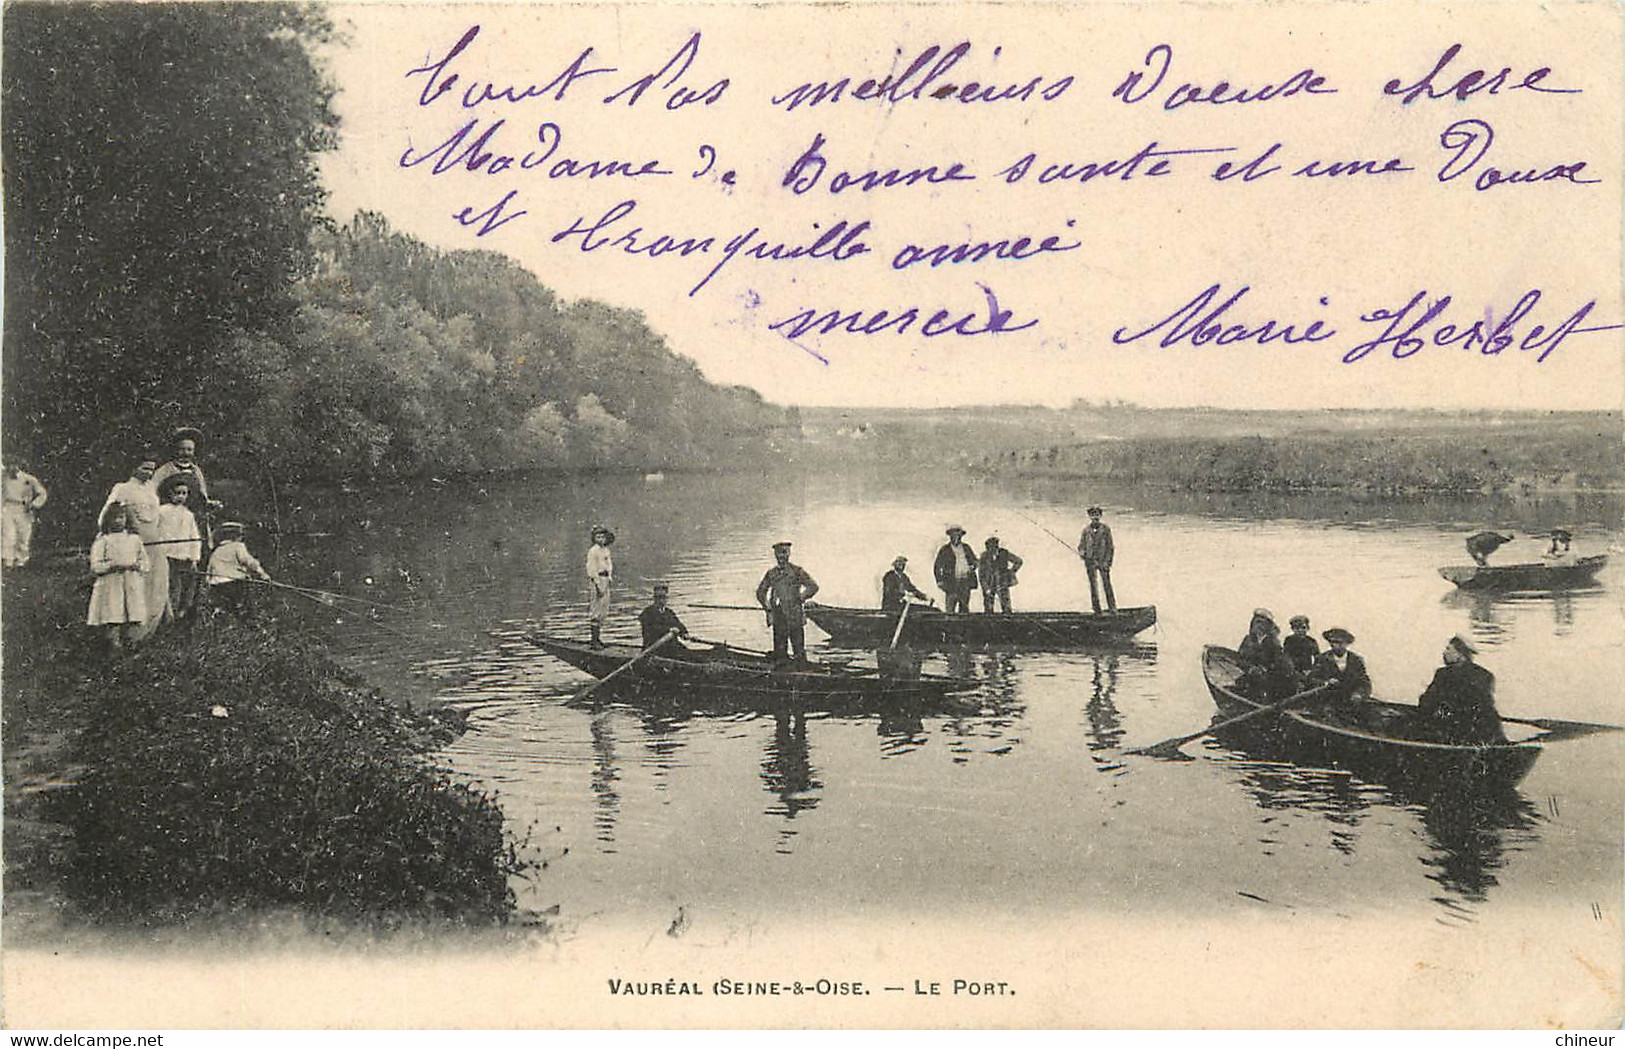 tout Nos meilleurs Voeux chere
Madame de Bonne sante et une Douse
et tranquille année
mercie Marie Herbet
VAURÉAL (SEINE-&-OISE. — LE PORT.
delcampe.net
chineur